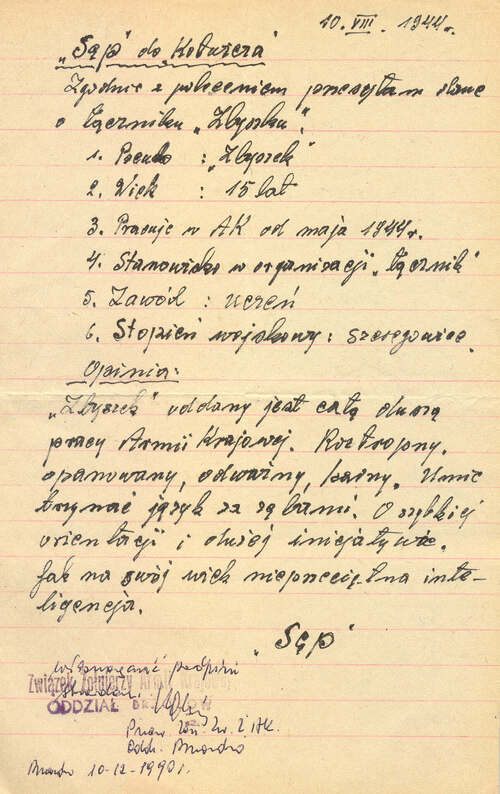 10. VIII. 1944r.
„Sęp" do Kołodzieja"
Zgodnie z poleceniem przesyłam dane
o łączniku „Zbyszku".
1. Pseudo : „Zbyszek"
2. Wiek : 15 lat
3. Pracuje w AK od maja 1944r.
4. Stanowisko w organizacji „łącznik"
5. Zawód : uczeń
6. Stopień wojskowy : szeregowiec.
Opinia:
„Zbyszek" oddany jest całą duszą
pracy Armii Krajowej. Roztropny,
opanowany, odważny, karny. Umie
trzymać język za zębami. O szybkiej
orientacji i dużej inicjatywie.
Jak na swój wiek nieprzeciętna inte-
ligencja.
„Sęp"
podpisu
Związek Żołnierzy Armii Krajowej
ODDZIAŁ
10-12-1990r.